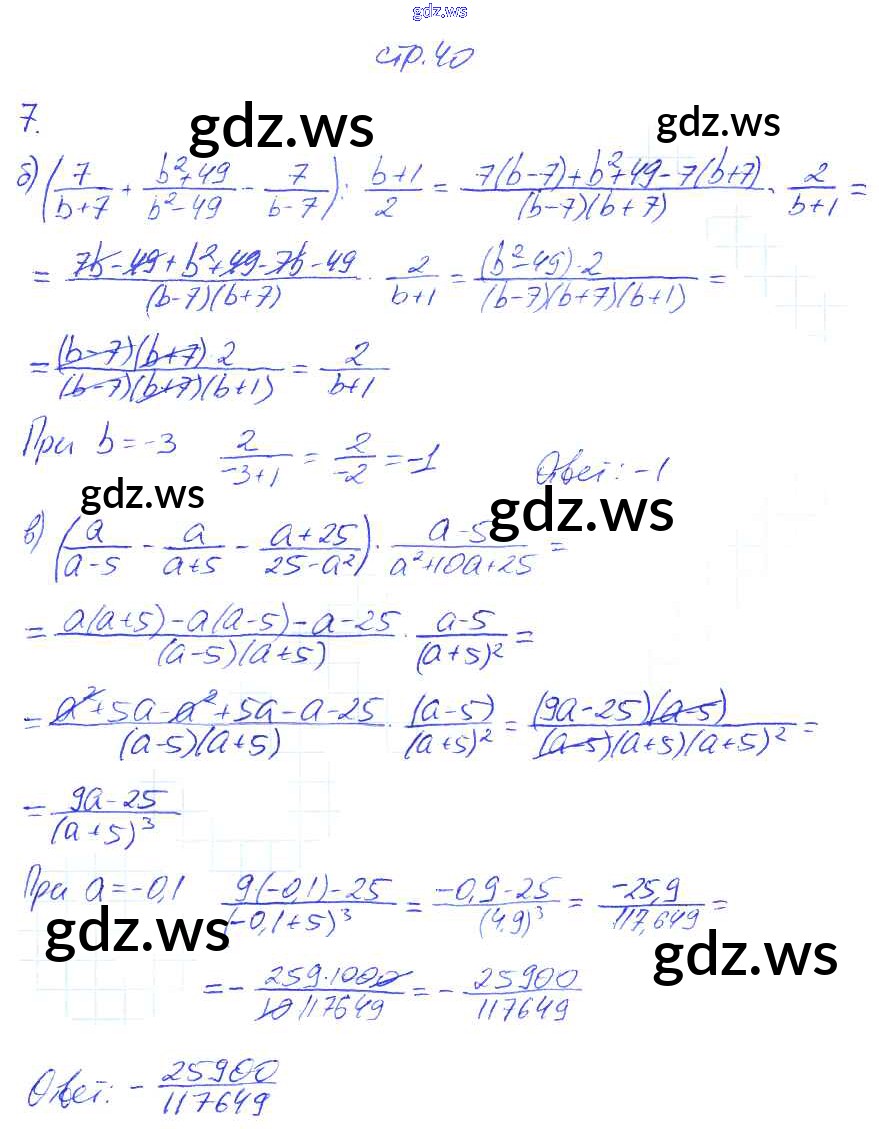 gdz.ws
стр. 40
7.
gdz.ws gdz.ws
б) (7/(b+7) + (b²+49)/(b²-49) - 7/(b-7)) : (b+1)/2 = (7(b-7)+b²+49-7(b+7))/((b-7)(b+7)) · 2/(b+1) =
= (7b-49+b²+49-7b-49)/((b-7)(b+7)) · 2/(b+1) = ((b²-49)·2)/((b-7)(b+7)(b+1)) =
= ((b-7)(b+7) 2)/((b-7)(b+7)(b+1)) = 2/(b+1)
При b=-3 2/(-3+1) = 2/(-2) = -1 Ответ: -1
gdz.ws gdz.ws
в) (a/(a-5) - a/(a+5) - (a+25)/(25-a²)) · (a-5)/(a²+10a+25) =
= (a(a+5)-a(a-5)-a-25)/((a-5)(a+5)) · (a-5)/(a+5)² =
= (a²+5a-a²+5a-a-25)/((a-5)(a+5)) · (a-5)/(a+5)² = ((9a-25)(a-5))/((a-5)(a+5)(a+5)²) =
= (9a-25)/(a+5)³
При a=-0,1 (9·(-0,1)-25)/(-0,1+5)³ = (-0,9-25)/(4,9)³ = (-25,9)/(117,649) =
gdz.ws gdz.ws
= - (259·1000)/(10 117649) = - 25900/117649
Ответ: - 25900/117649